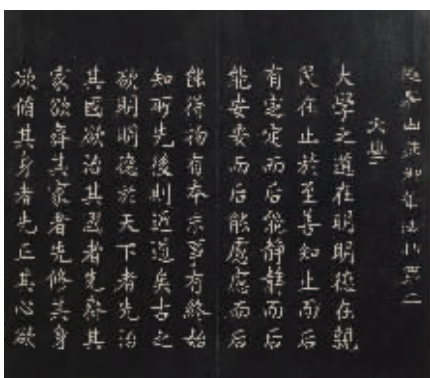 大學
大學之道在明明德在親
民在止於至善知止而后
有定定而后能靜靜而后
能安安而后能慮慮而后
能得物有本末事有終始
知所先後則近道矣古之
欲明明德於天下者先治
其國欲治其國者先齊其
家欲齊其家者先修其身
欲脩其身者先正其心欲